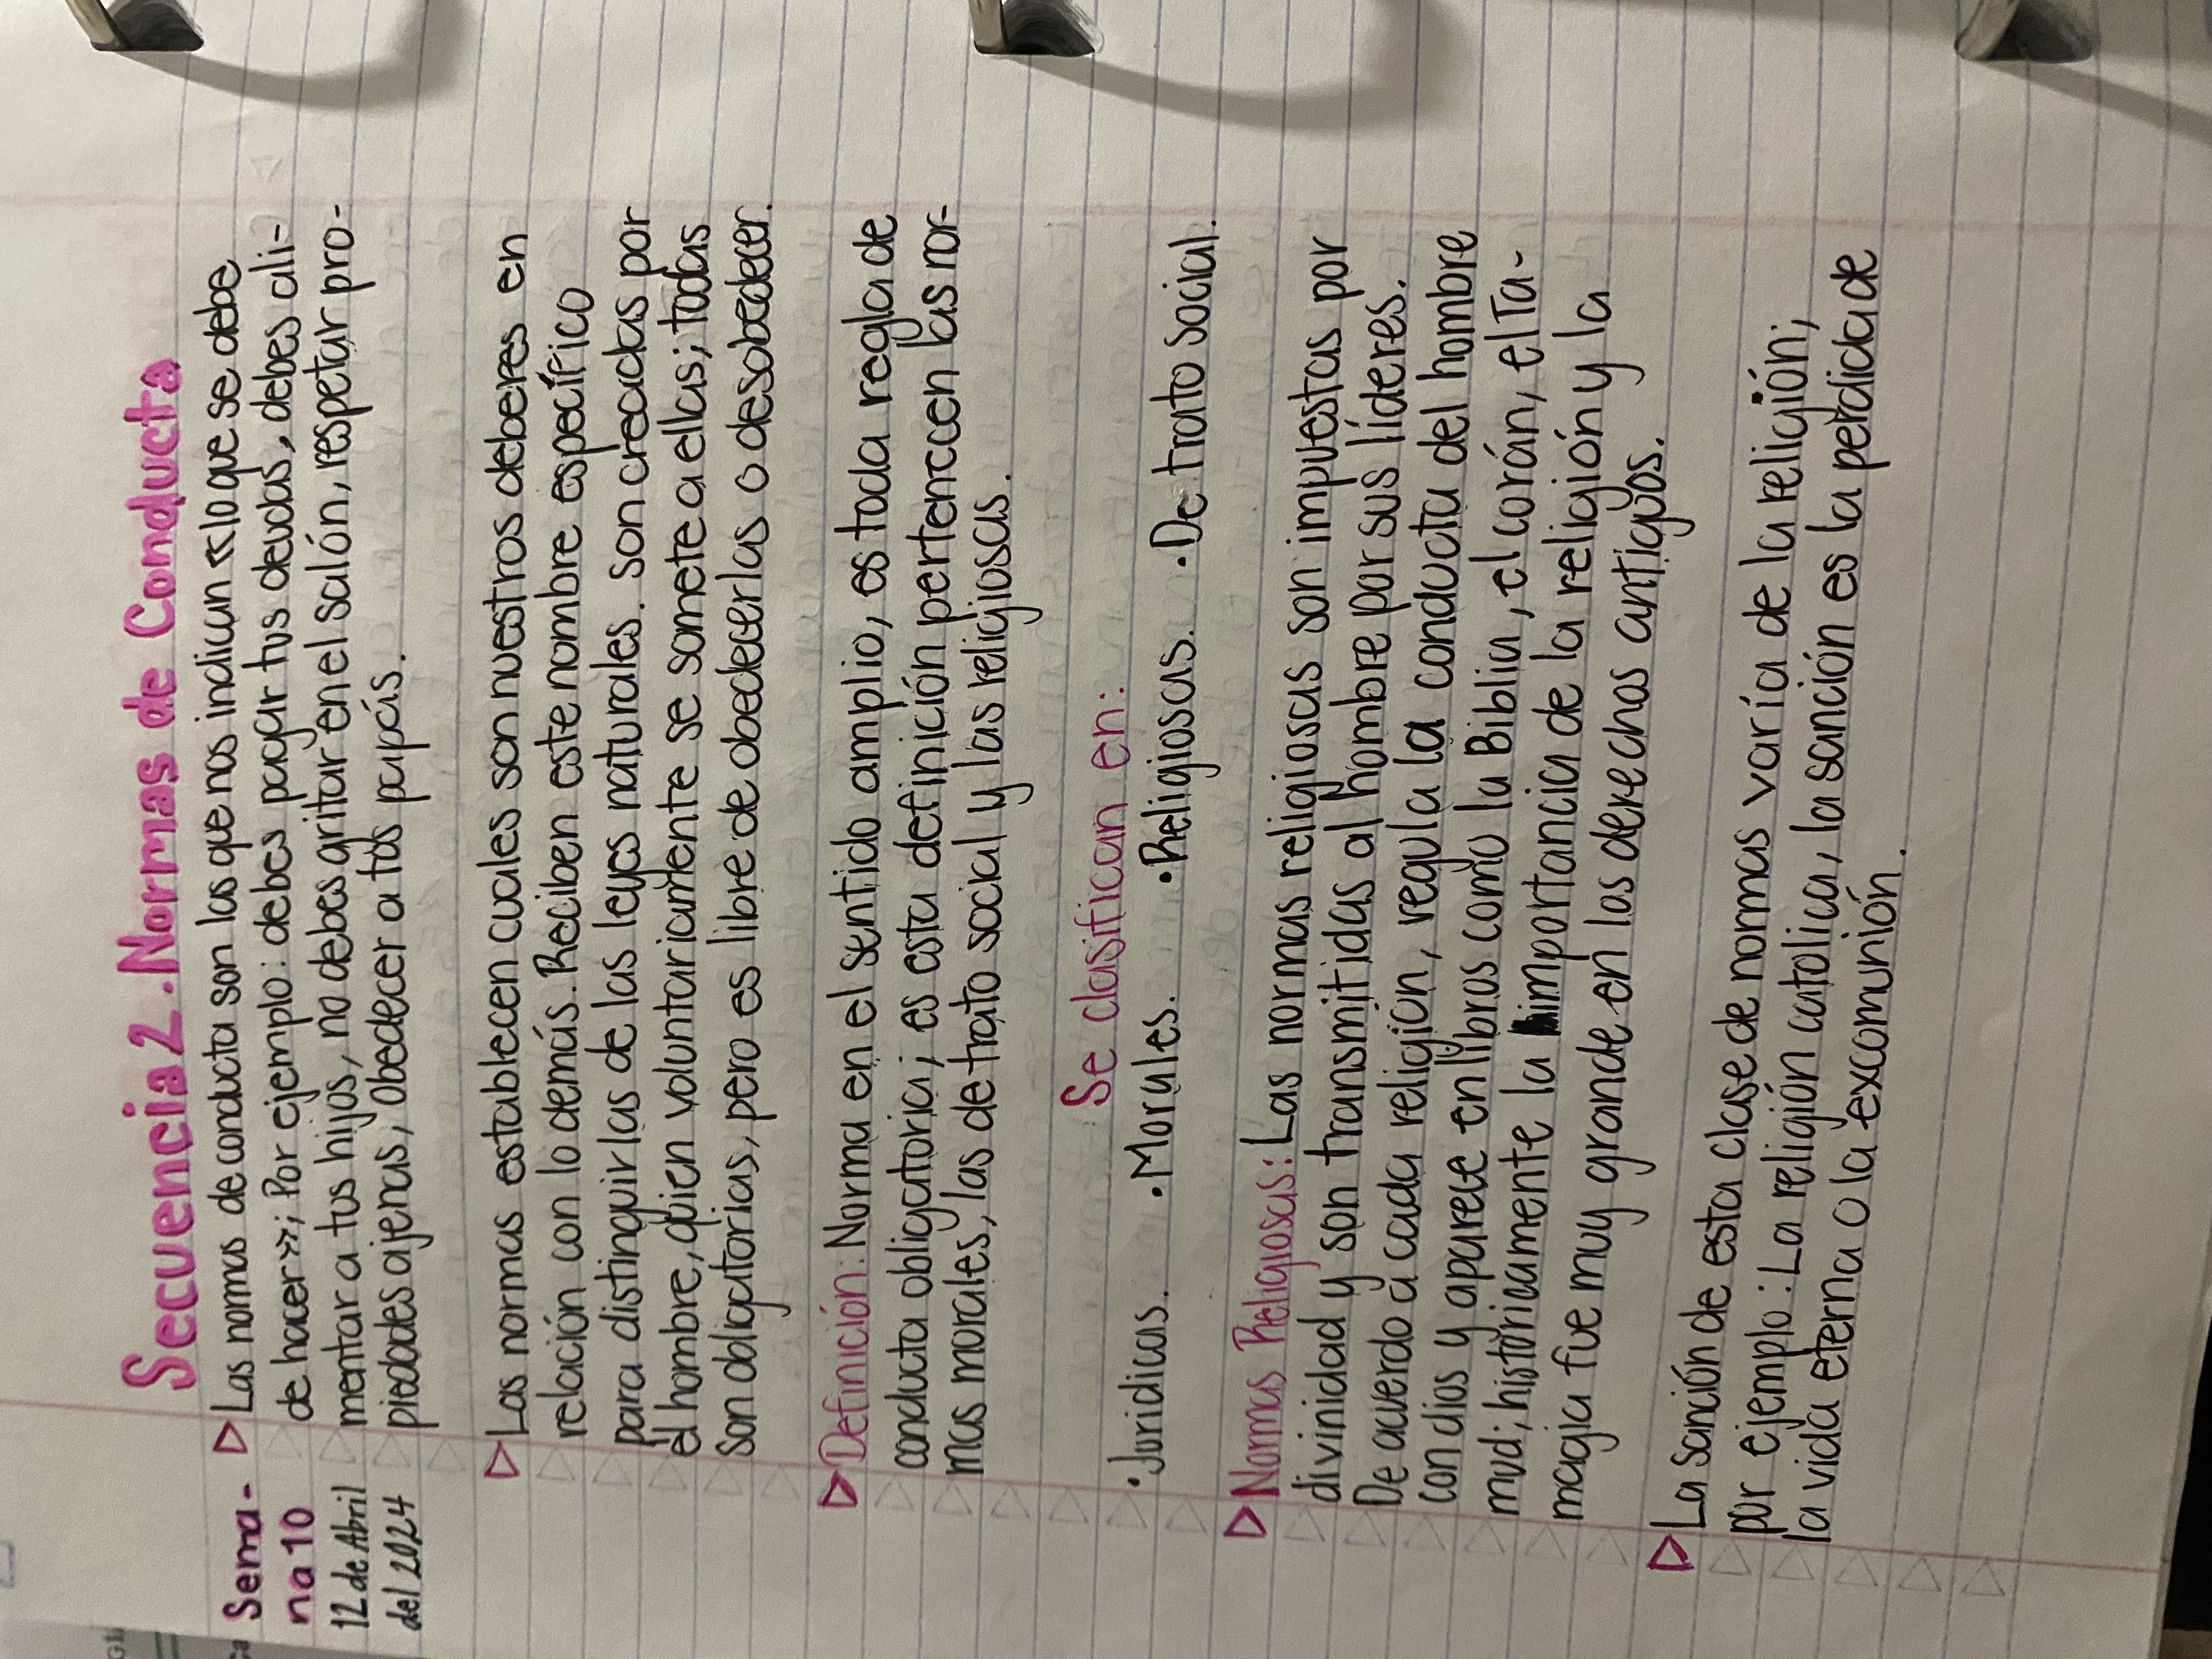 Secuencia 2. Normas de Conducta
Sema-
na 10
12 de Abril
del 2024
Las normas de conducta son las que nos indican «lo que se debe
de hacer»; Por ejemplo: debes pagar tus deudas, debes ali-
mentar a tus hijos, no debes gritar en el salón, respetar pro-
piedades ajenas, obedecer a tus papás.
Las normas establecen cuales son nuestros deberes en
relación con lo demás. Reciben este nombre específico
para distinguirlas de las leyes naturales. son creadas por
el hombre, quien voluntariamente se somete a ellas; todas
son obligatorias, pero es libre de obedecerlas o desobedecer.
Definición: Norma en el sentido amplio, es toda regla de
conducta obligatoria; es esta definición pertenecen las nor-
mas morales, las de trato social y las religiosas.
Se clasifican en:
·Juridicas. ·Morales. ·Religiosas. ·De trato social.
Normas Religiosas: Las normas religiosas son impuestas por
divinidad y son transmitidas al hombre por sus líderes.
De acuerdo a cada religion, regula la conducta del hombre
con dios y aparece en libros como la Biblia, el corán, el Ta-
mud; históricamente la importancia de la religión y la
magia fue muy grande en los derechos antiguos.
La sanción de esta clase de normas varía de la religión;
por ejemplo: La religión catolica, la sanción es la perdida de
la vida eterna o la excomunión.